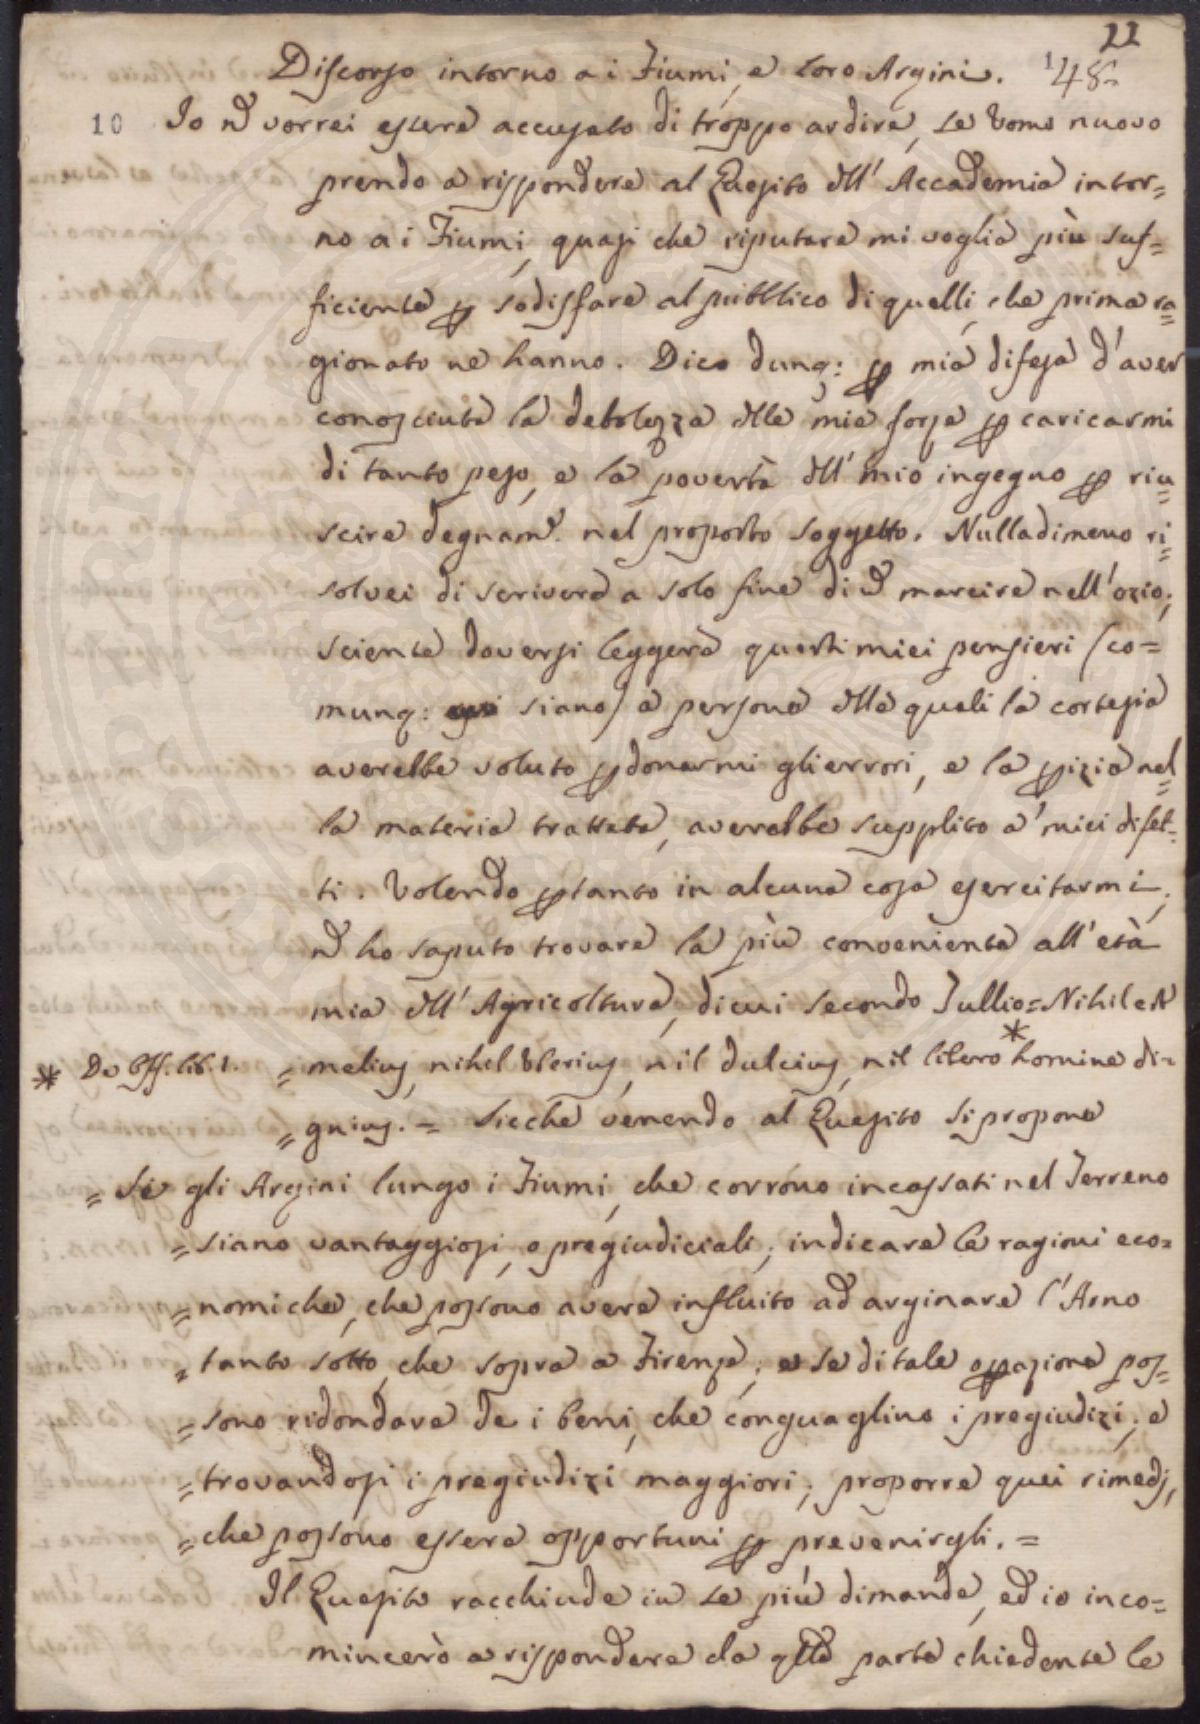 22
Discorso intorno a i Fiumi, e loro Argini. 148.
10 Io nō vorrei essere accusato di troppo ardire, se Vomo nuovo
prendo a rispondere al Quesito dll' Accademia intor=
no a i Fiumi, quasi che riputare mi voglia più suf=
ficiente ꝑ sodisfare al pubblico di quelli, che prima ra=
gionato ne hanno. Dico dunq: ꝑ mia difesa d'aver
conosciuta la debolezza dlle mie forze ꝑ caricarmi
di tanto peso, e la povertà dll' mio ingegno ꝑ riu=
scire degnamē. nel proposto soggetto. Nulladimeno ri=
solvei di scrivere a solo fine di nō marcire nell'ozio;
sciente doversi leggere questi miei pensieri (co=
munq: siano) a persone dlle quali la cortesia
averebbe voluto ꝑdonarmi gli errori, e la ꝑizia nel=
la materia trattata, averebbe supplito a' miei difet=
ti. Volendo ꝑtanto in alcuna cosa esercitarmi,
nō ho saputo trovare la più conveniente all'età
mia dll' Agricoltura, di cui secondo Tullio = Nihil est
* De Off. lib. 1. = melius, nihil Vberius, nil dulcius, nil libero * homine di=
= gnius. = Sicchè venendo al Quesito si propone
= Se gli Argini lungo i Fiumi, che corrono incassati nel Terreno
= siano vantaggiosi, o pregiudiciali; indicare le ragioni eco=
= nomiche, che possono avere influito ad arginare l'Arno
= tanto sotto, che sopra a Firenze; e se di tale oꝑazione pos=
= sono ridondare de i beni, che conguaglino i pregiudizi; e
= trovandosi i pregiudizi maggiori; proporre quei rimedj,
= che possono essere opportuni ꝑ prevenirgli. =
Il Quesito racchiude in se più dimande, ed io inco=
mincerò a rispondere da qlla parte chiedente le